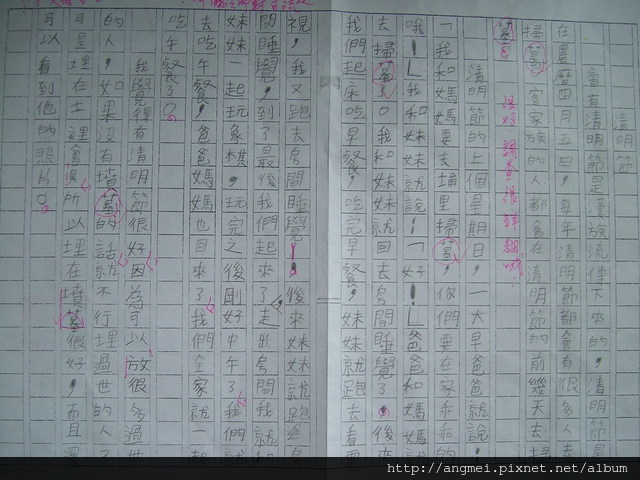 清明節
都有清明節是漢族流傳下來的，清明節
在農曆四月五日，每年清明節都會有很多人去
掃墓，客家族的人都會在清明節的前幾天去掃
墓。很好，調查得詳細哦！
清明節的上個星期日，一大早爸爸說：
「我和媽媽要去埔里掃墓，你們要在家乖乖的
哦！」我和妹妹就說：「好！」爸爸和媽媽就
去掃墓了。我和妹妹回去房間睡覺了，後來
我們起床吃早餐，吃完早餐，妹妹就跑去看電
視，我又跑去房間睡覺！後來妹妹就跑進房
間睡覺，到了最後我們起來了，走出房間我就和
妹妹一起玩象棋，玩完之後剛好中午了我們就
去吃午餐，爸爸媽媽也回來了我們全家就一起
吃午餐了。
我覺得有清明節很好因為可以放很多過世
的人，如果沒有墳墓的話就不行埋過世的人了
可是人埋在土裡會
所以埋在墳墓很好，而且還
可以看到他的照片。
http://angmei.pixnet.net/album